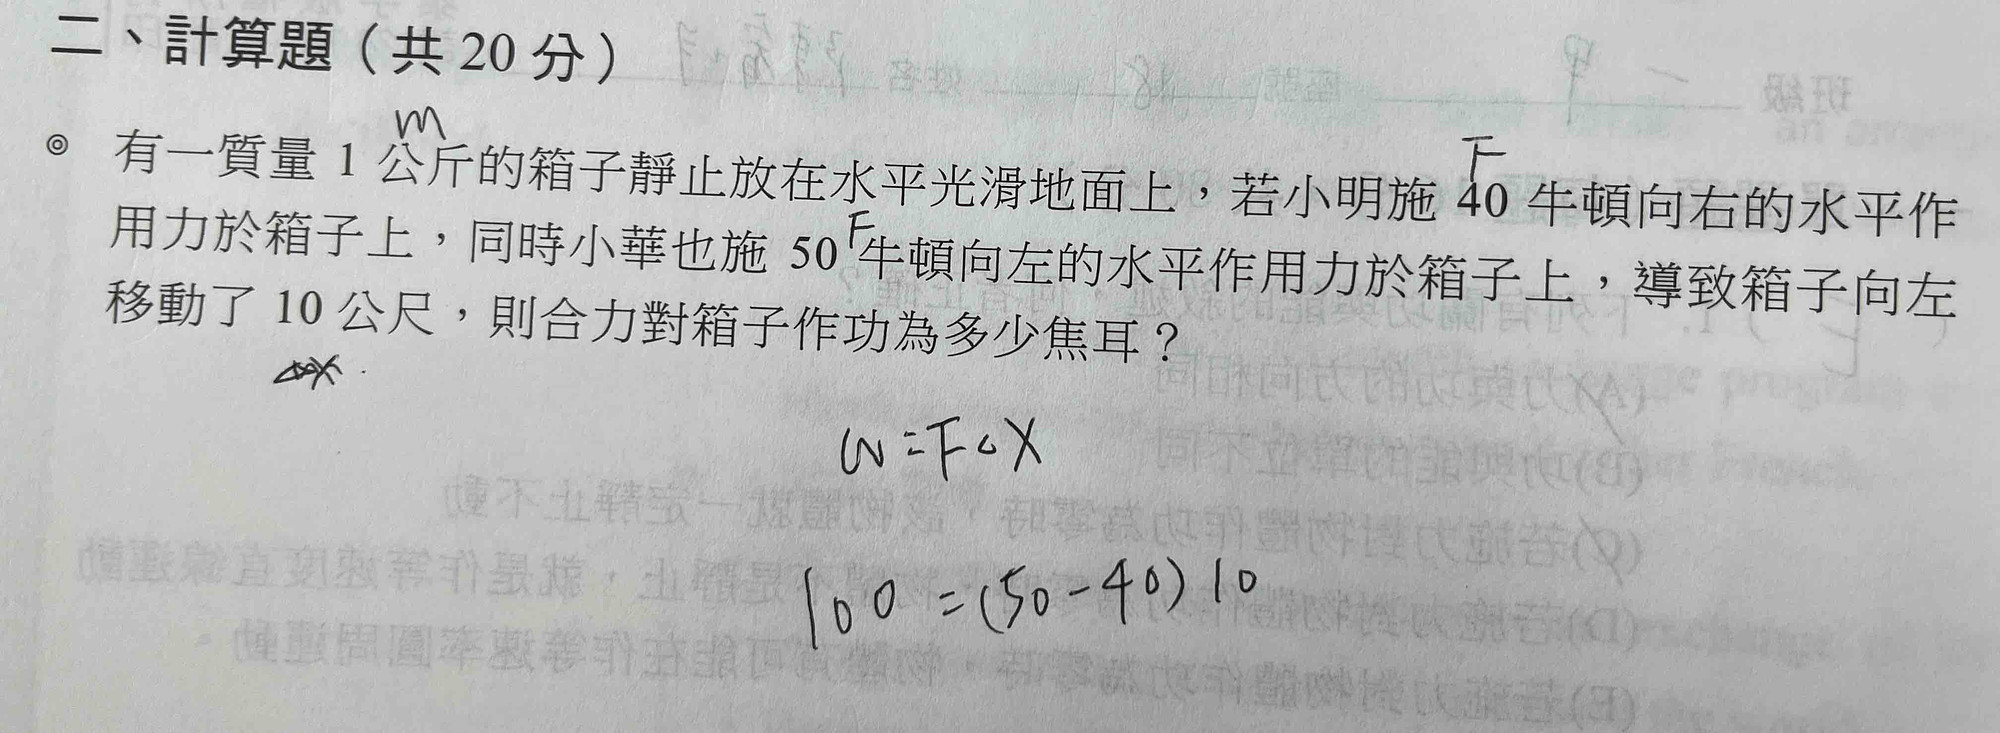 二、計算題（共 20 分）
m
F
◎ 有一質量 1 公斤的箱子靜止放在水平光滑地面上，若小明施 40 牛頓向右的水平作
F
用力於箱子上，同時小華也施 50 牛頓向左的水平作用力於箱子上，導致箱子向左
移動了 10 公尺，則合力對箱子作功為多少焦耳？
W=F△X
100=(50-40)10